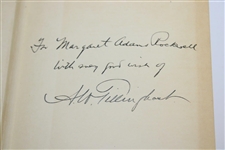 For Margaret Adams Rockwell
With every good wish of
A W Tillinghast